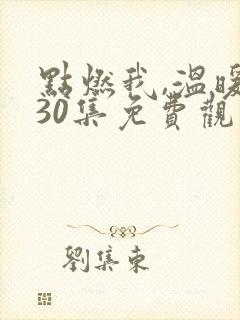 點燃我,溫暖
30集免費觀
劉集東